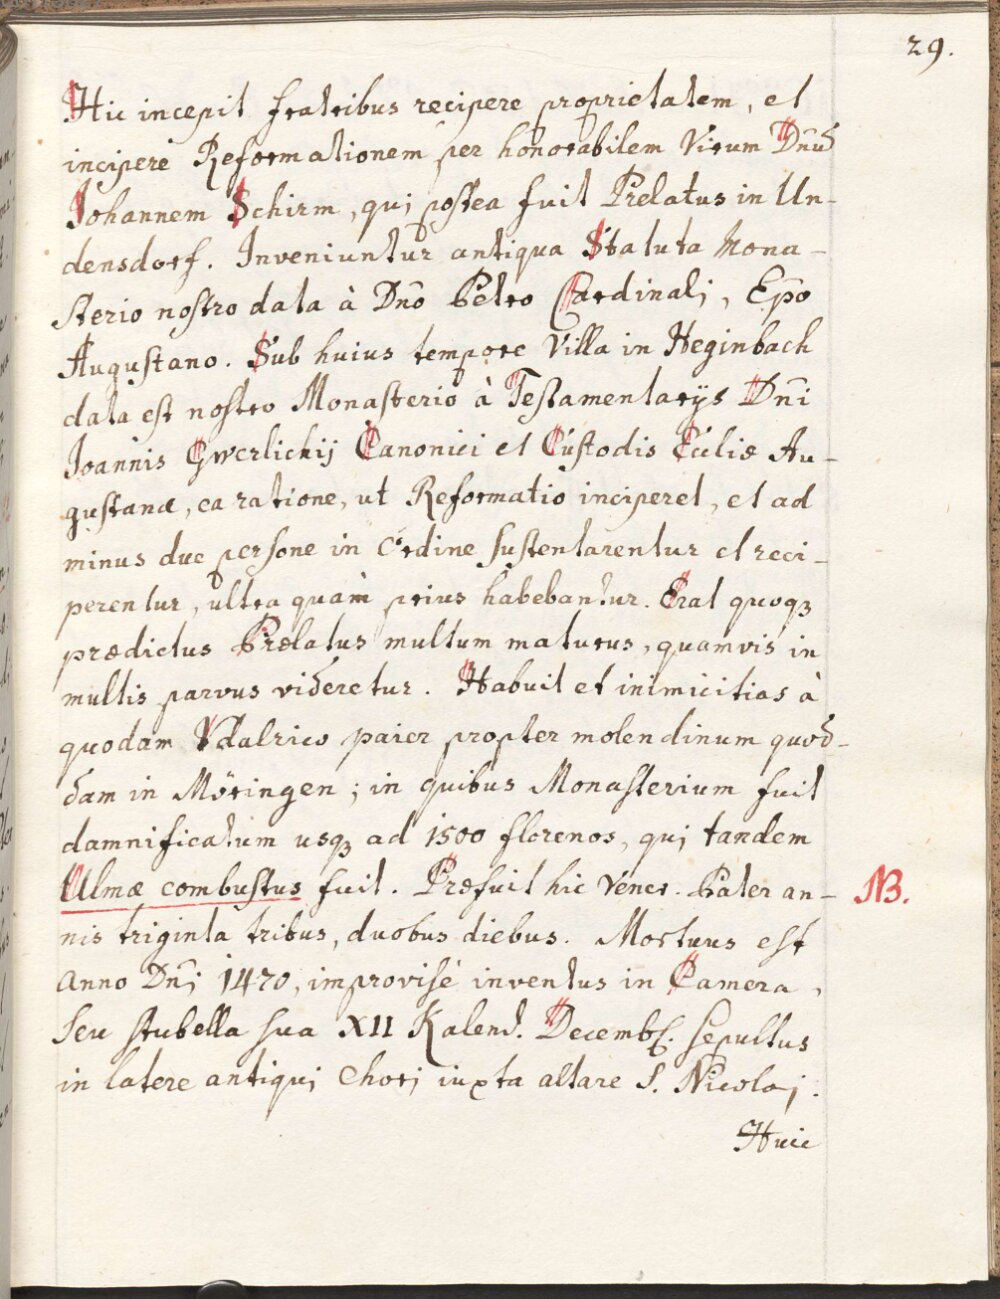 29.
Hic incepit fratribus recipere proprietatem, et
incipere Reformationem per honorabilem Virum Dn̄ū
Johannem Schirm, qui postea fuit Prelatus in Un-
densdorf. Inveniuntur antiqua Statuta Mona-
sterio nostro data à Dn̄o Petro Cardinali, Ep̄o
Augustano. Sub huius tempore Villa in Heginbach
data est nostro Monasterio à Testamentarijs Dn̄i
Joannis Gwerlichij Canonici et Custodis Ecclie Au-
gustanæ, ea ratione, ut Reformatio inciperet, et ad
minus due persone in Ordine sustentarentur et reci-
perentur, ultra quàm prius habebantur. Erat quoqꝫ
prædictus Prælatus multum maturus, quamvis in
multis parvus videretur. Habuit et inimicitias à
quodam Vdalrico paier propter molendinum quod-
dam in Möringen; in quibus Monasterium fuit
damnificatum usqꝫ ad 1500 florenos, qui tandem
Ulmæ combustus fuit. Præfuit hic Vener. Pater an- NB.
nis triginta tribus, duobus diebus. Mortuus est
Anno Dn̄i 1470, improvisè inventus in Camera,
seu stubella sua XII Kalend. Decemb. sepultus
in latere antiqui Chori iuxta altare S. Nicolai.
Huic